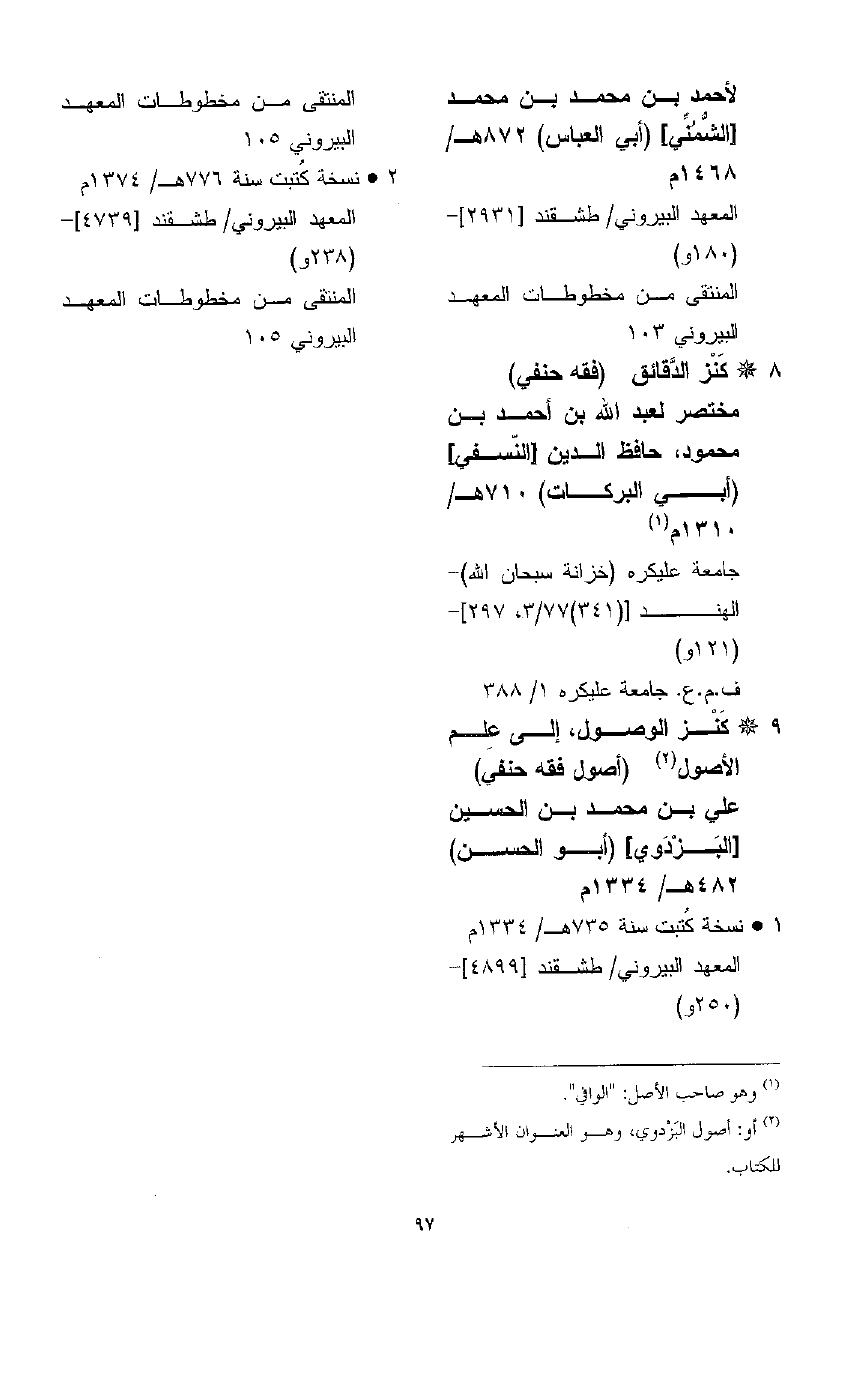 لأحمد بن محمد بن محمد
[الشُّمُنِّي] (أبي العباس) ٨٧٢هـ/
١٤٦٨م
المعهد البيروني/ طشقند [٢٩٣١]-
(١٨٠و)
المنتقى من مخطوطات المعهد
البيروني ١٠٣
٨ ❋ كَنْز الدَّقائق (فقه حنفي)
مختصر لعبد الله بن أحمد بن
محمود، حافظ الدين [النّسفي]
(أبي البركات) ٧١٠هـ/
١٣١٠م(١)
جامعة عليكره (خزانة سبحان الله)-
الهند [(٣٤١)٣/٧٧، ٢٩٧]-
(١٢١و)
ف.م.ع. جامعة عليكره ١/ ٣٨٨
٩ ❋ كَنْز الوصول، إلى علِم
الأصول(٢) (أصول فقه حنفي)
علي بن محمد بن الحسين
[البَزْدَوي] (أبو الحسن)
٤٨٢هـ/ ١٣٣٤م
١ • نسخة كُتبت سنة ٧٣٥هـ/ ١٣٣٤م
المعهد البيروني/ طشقند [٤٨٩٩]-
(٢٥٠و)
المنتقى من مخطوطات المعهد
البيروني ١٠٥
٢ • نسخة كُتبت سنة ٧٧٦هـ/ ١٣٧٤م
المعهد البيروني/ طشقند [٤٧٣٩]-
(٢٣٨و)
المنتقى من مخطوطات المعهد
البيروني ١٠٥
(١) وهو صاحب الأصل: "الوافي".
(٢) أو: أصول البَزْدوي، وهو العنوان الأشهر
للكتاب.
٩٧